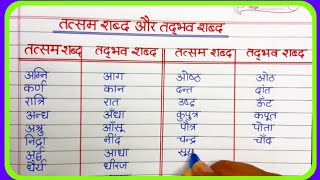 तत्सम शब्द और तद्भव शब्द
तत्सम शब्द तद्भव शब्द तत्सम शब्द तद्भव शब्द
अग्नि आग ओष्ठ ओठ
कर्ण कान दन्त दाँत
रात्रि रात उष्ट्र ऊँट
अन्ध अँधा कुपुत्र कपूत
अश्रु आँसू पौत्र पोता
निद्रा नींद चन्द्र चाँद
अर्द्ध आधा सूर्य
धैर्य धीरज